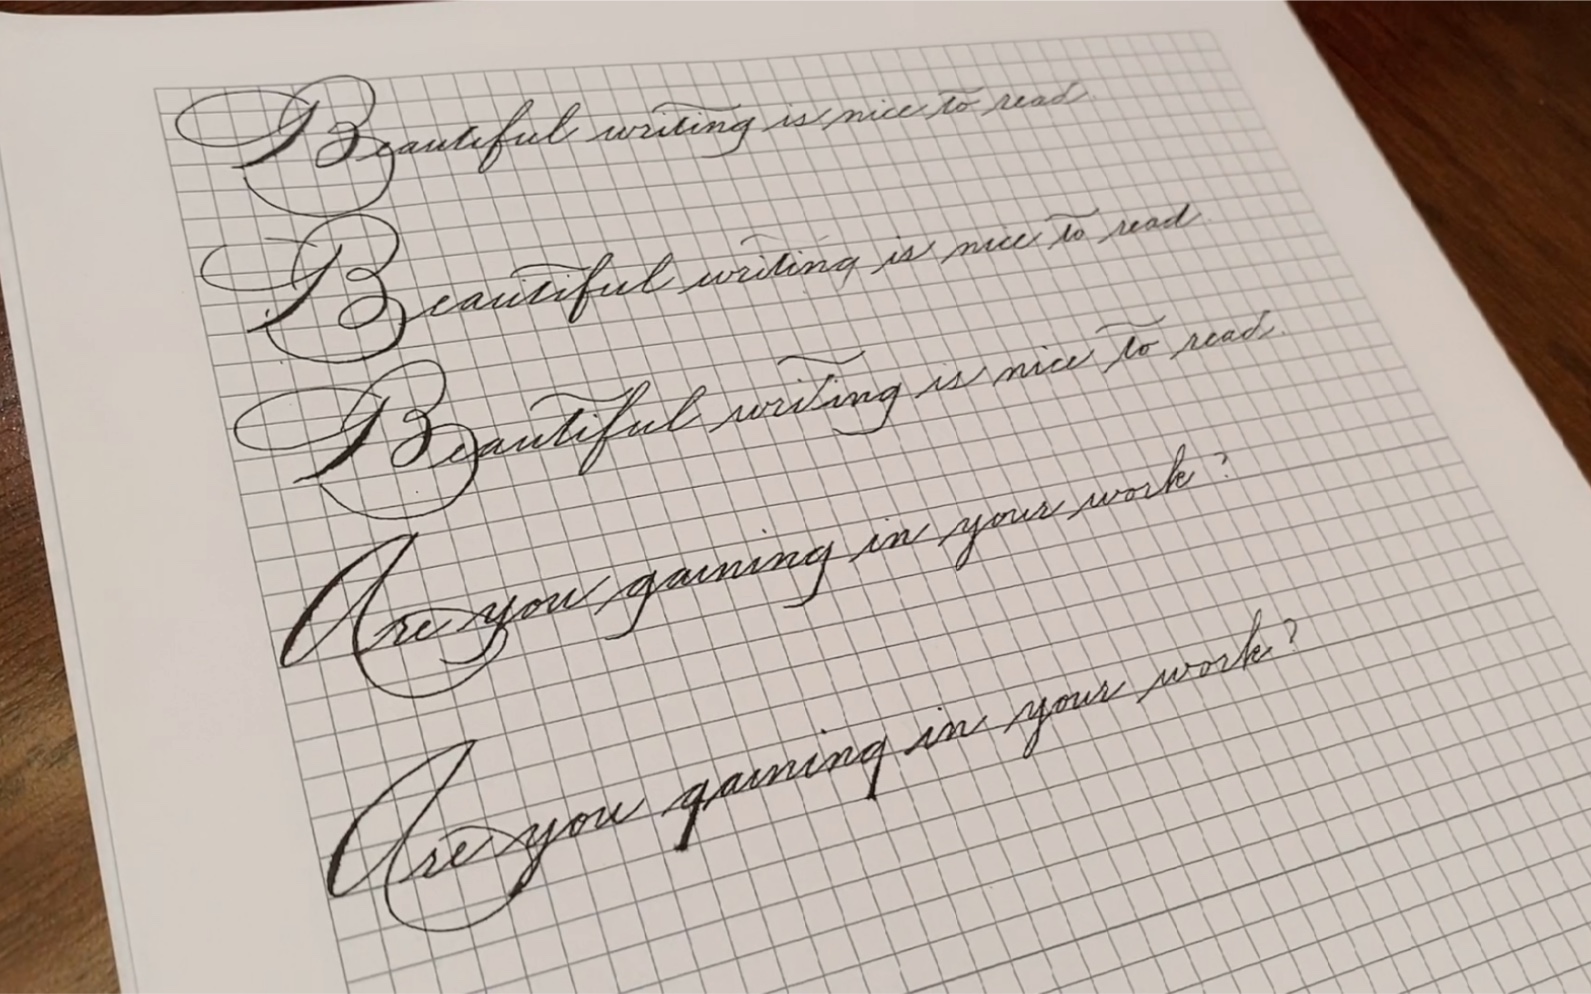 Beautiful writing is nice to read.
Beautiful writing is nice to read.
Beautiful writing is nice to read.
Are you gaining in your work?
Are you gaining in your work?